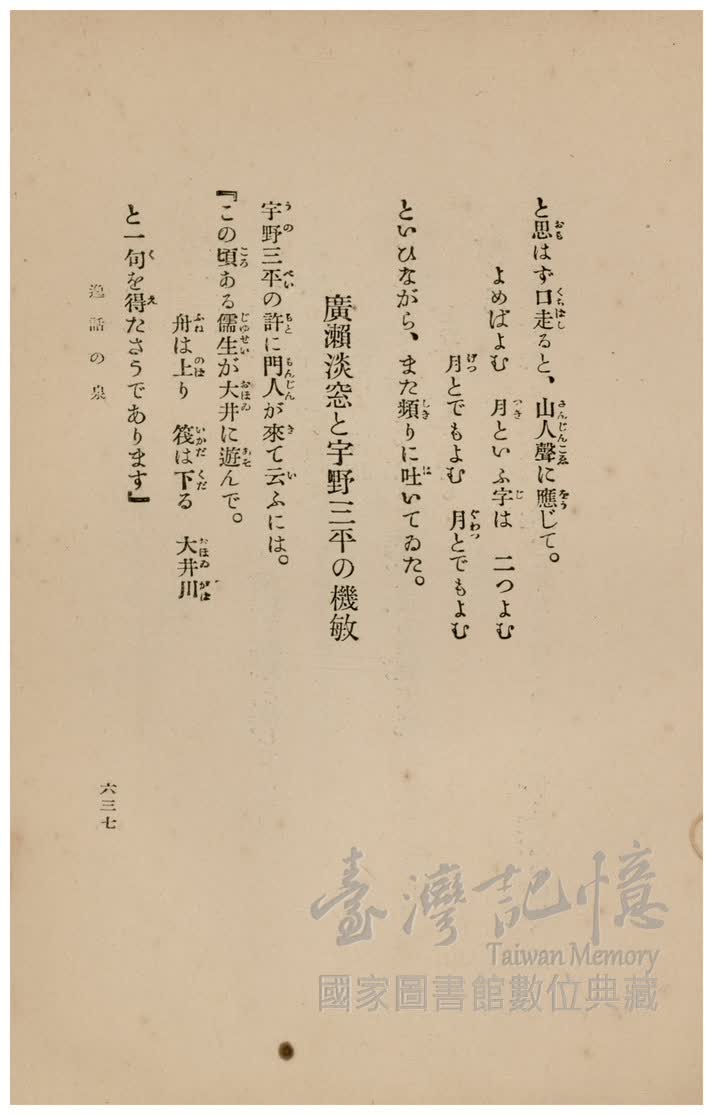 と思はず口走ると、山人聲に應じて。
よめばよむ　月といふ字は　二つよむ
月とでもよむ　月とでもよむ
といひながら、また頻りに吐いてゐた。
廣瀬淡窓と宇野三平の機敏
宇野三平の許に門人が來て云ふには。
『この頃ある儒生が大井に遊んで。
舟は上り　筏は下る　大井川
と一句を得たさうであります』
逸話の泉
六三七
臺灣記憶
Taiwan Memory
國家圖書館數位典藏